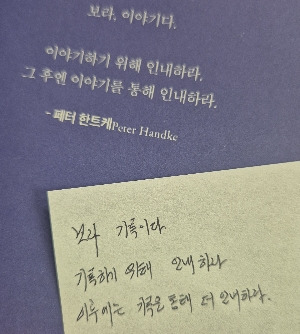 보라, 이야기다.
이야기하기 위해 인내하라.
그 후엔 이야기를 통해 인내하라.
- 페터 한트케Peter Handke
보라 기록이다
기록하기 위해 인내하라
이후에는 기록을 통해 더 인내하라.